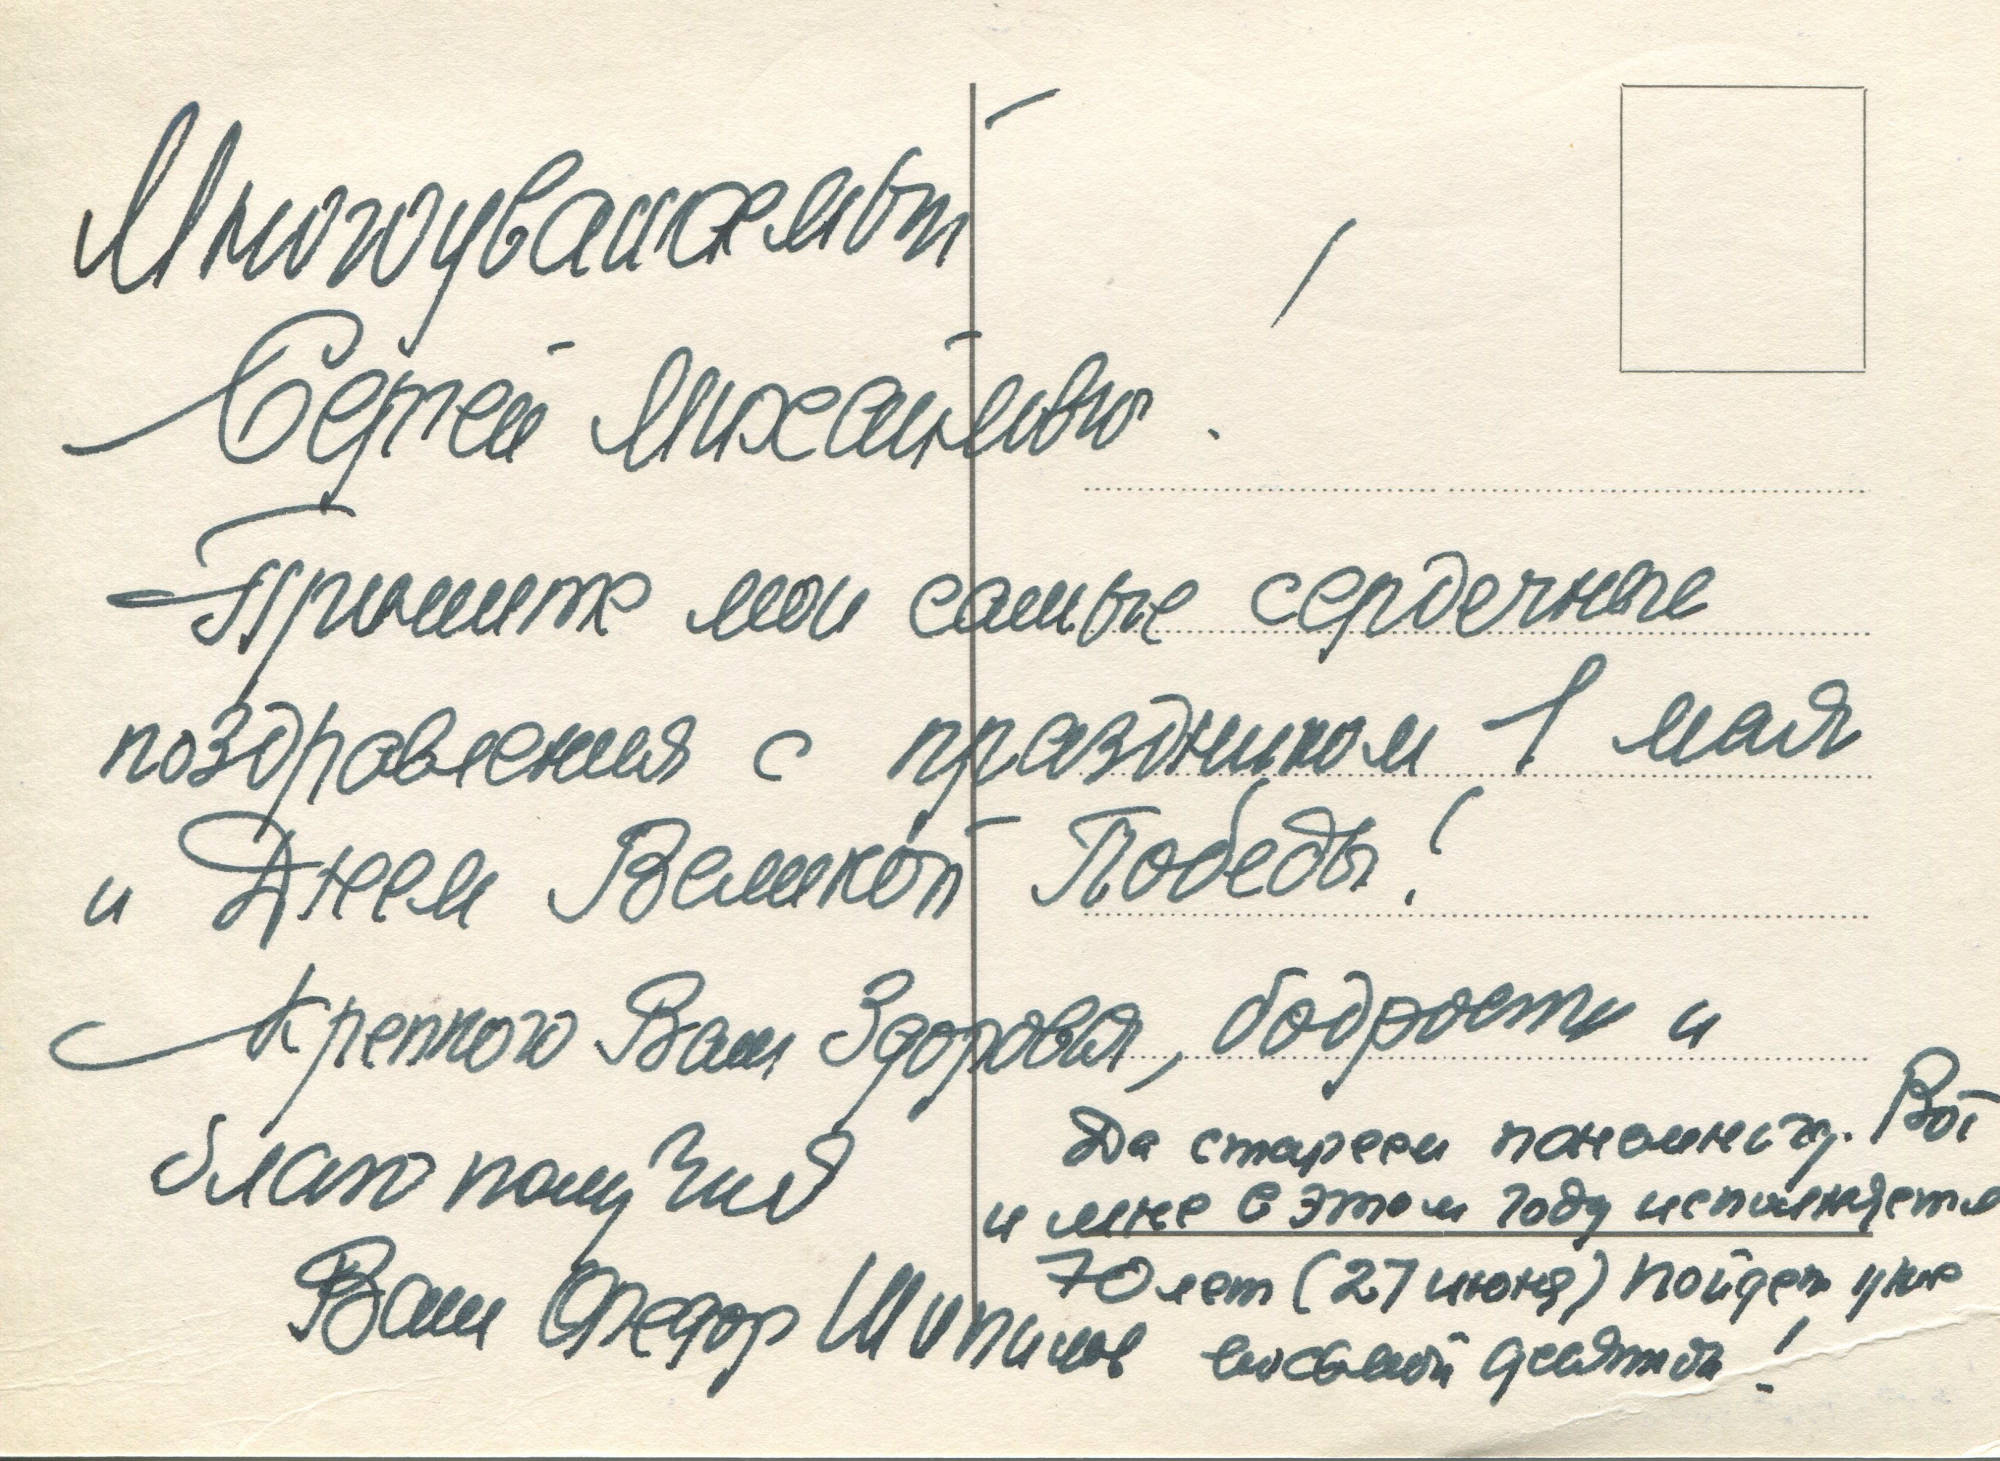 Многоуважаемый
Сергей Михайлович!
Примите мои самые сердечные
поздравления с праздником 1 мая
и Днем Великой Победы!
Крепкого Вам Здоровья, бодрости и
благополучия
Ваш Федор Шипилов
Да стареем понемногу. Вот
и мне в этом году исполняется
70 лет (27 июня) пойдет уже
восьмой десяток!